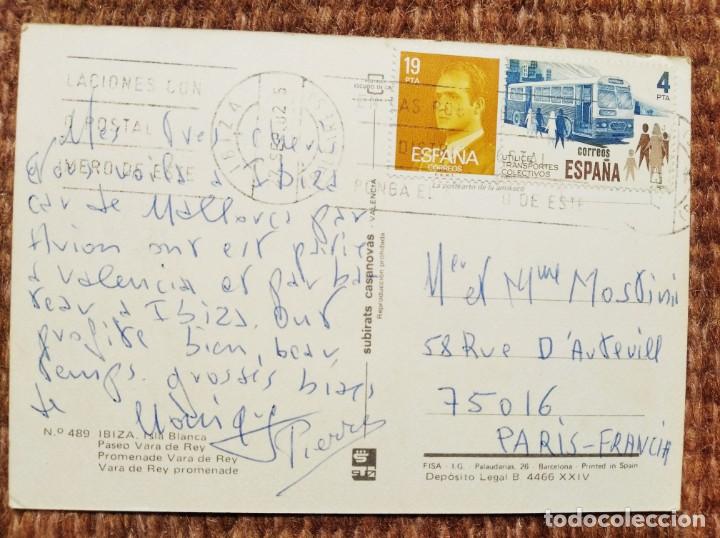 LACIONES CON
O POSTAL
MERO DE ESTE
IBIZA
Mes tres chers
Nous voila a Ibiza
car de Mallorca par
Avion on est partie
a Valencia et par ba
teau a Ibiza. Ont
profite bien, beau
temps. grosses bises
de Monique
Pierre
Nº 489 IBIZA. Isla Blanca
Paseo Vara de Rey
Promenade Vara de Rey
Vara de Rey promenade
subirats casanovas - VALENCIA
Reproducción prohibida
19
PTA
ESPAÑA
CORREOS
4
PTA
UTILICE
TRANSPORTES
COLECTIVOS
correos
ESPAÑA
PONGA EL
O DE ESTE
Mer et Mme
58 Rue D'Auteuill
75016
PARIS-FRANCIA
FISA - I.G. - Palaudarias, 26 - Barcelona - Printed in Spain
Depósito Legal B. 4466 XXIV
todocoleccion.net